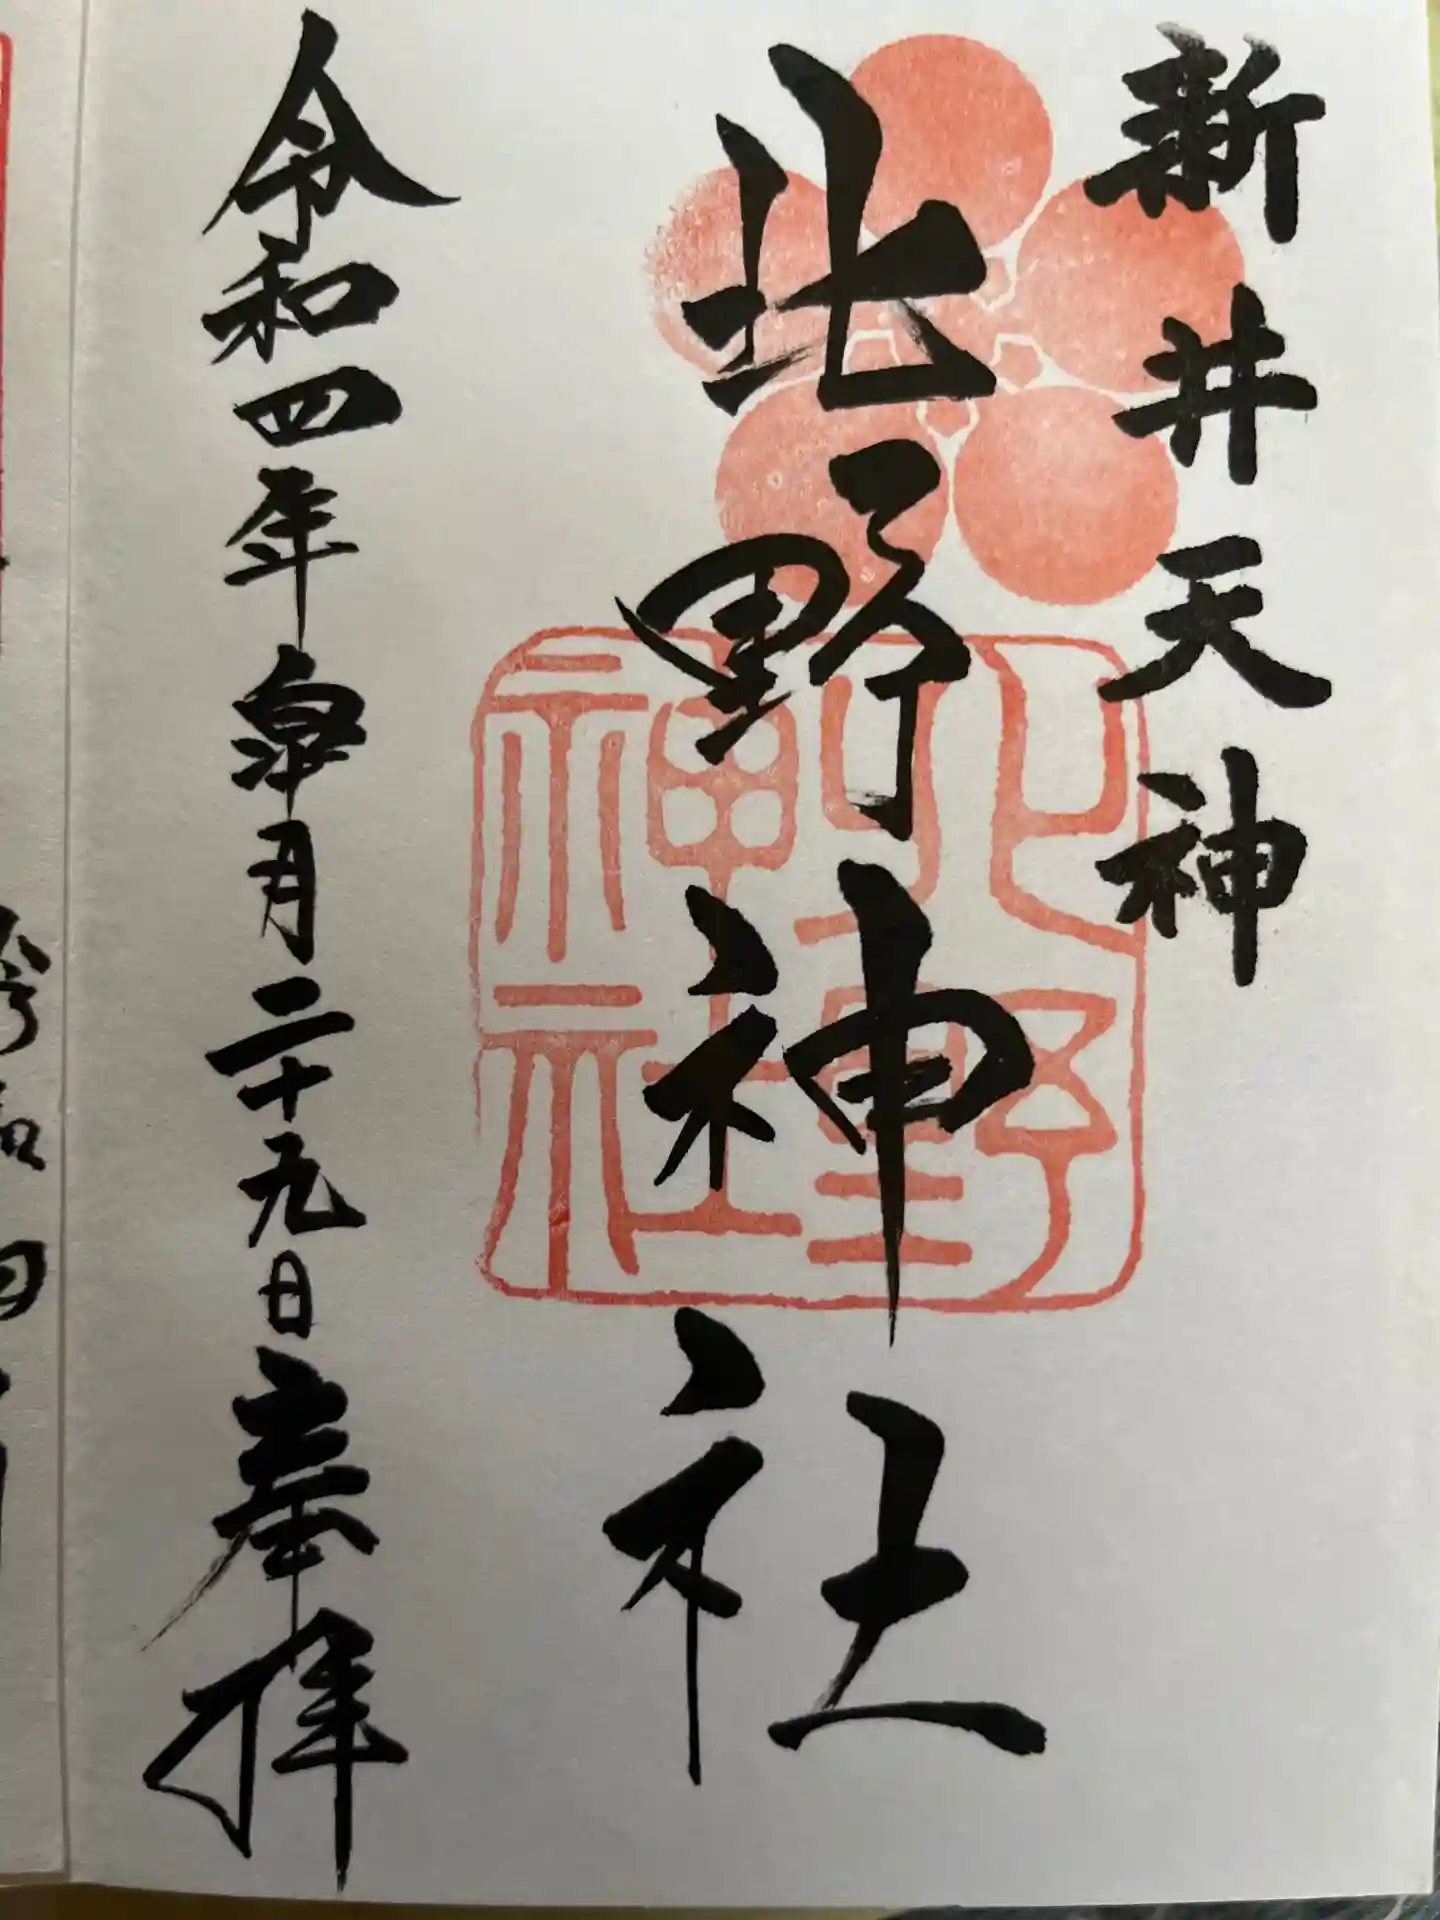 新井天神
北野神社
北野
神社
令和四年皐月二十九日奉拝